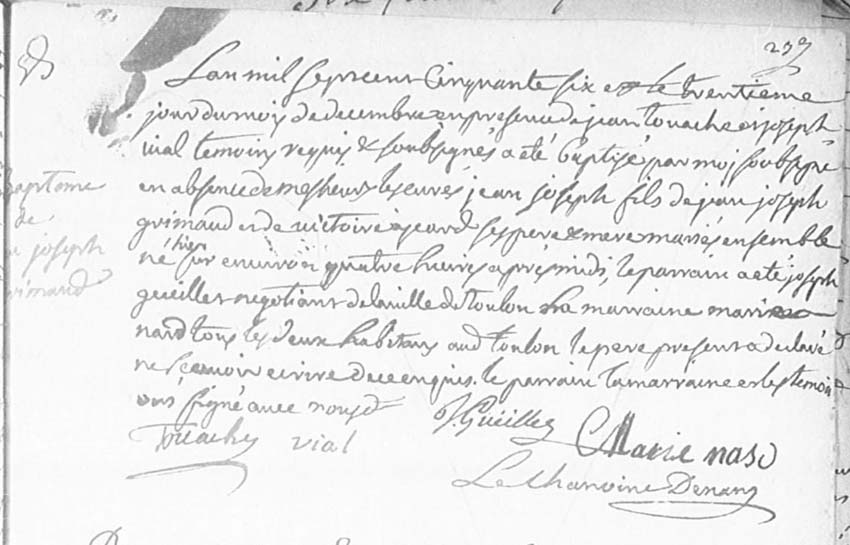 237
L'an mil sept cent cinquante six et le trentieme
jour du mois de decembre en presence de jean touache et joseph
vial temoins requis & soubsignés a eté baptisé par moi soubsigné
en absence de messieurs les curés, jean joseph fils de jean joseph
baptome
de
joseph
grimaud et de victoire ses pere & mere mariés ensemble
né hier sur environ quatre heures apres midi, le parrain a eté joseph
gueillet negotiant de la ville de toulon la marraine marie
nard tous les deux habitans aud toulon le pere present a declaré
ne sçavoir ecrire de ce enquis. le parrain la marraine et les temoin
ont signé avec nous
J. Gueillet
Touache vial
Marie naso
Le Chanoine Denans